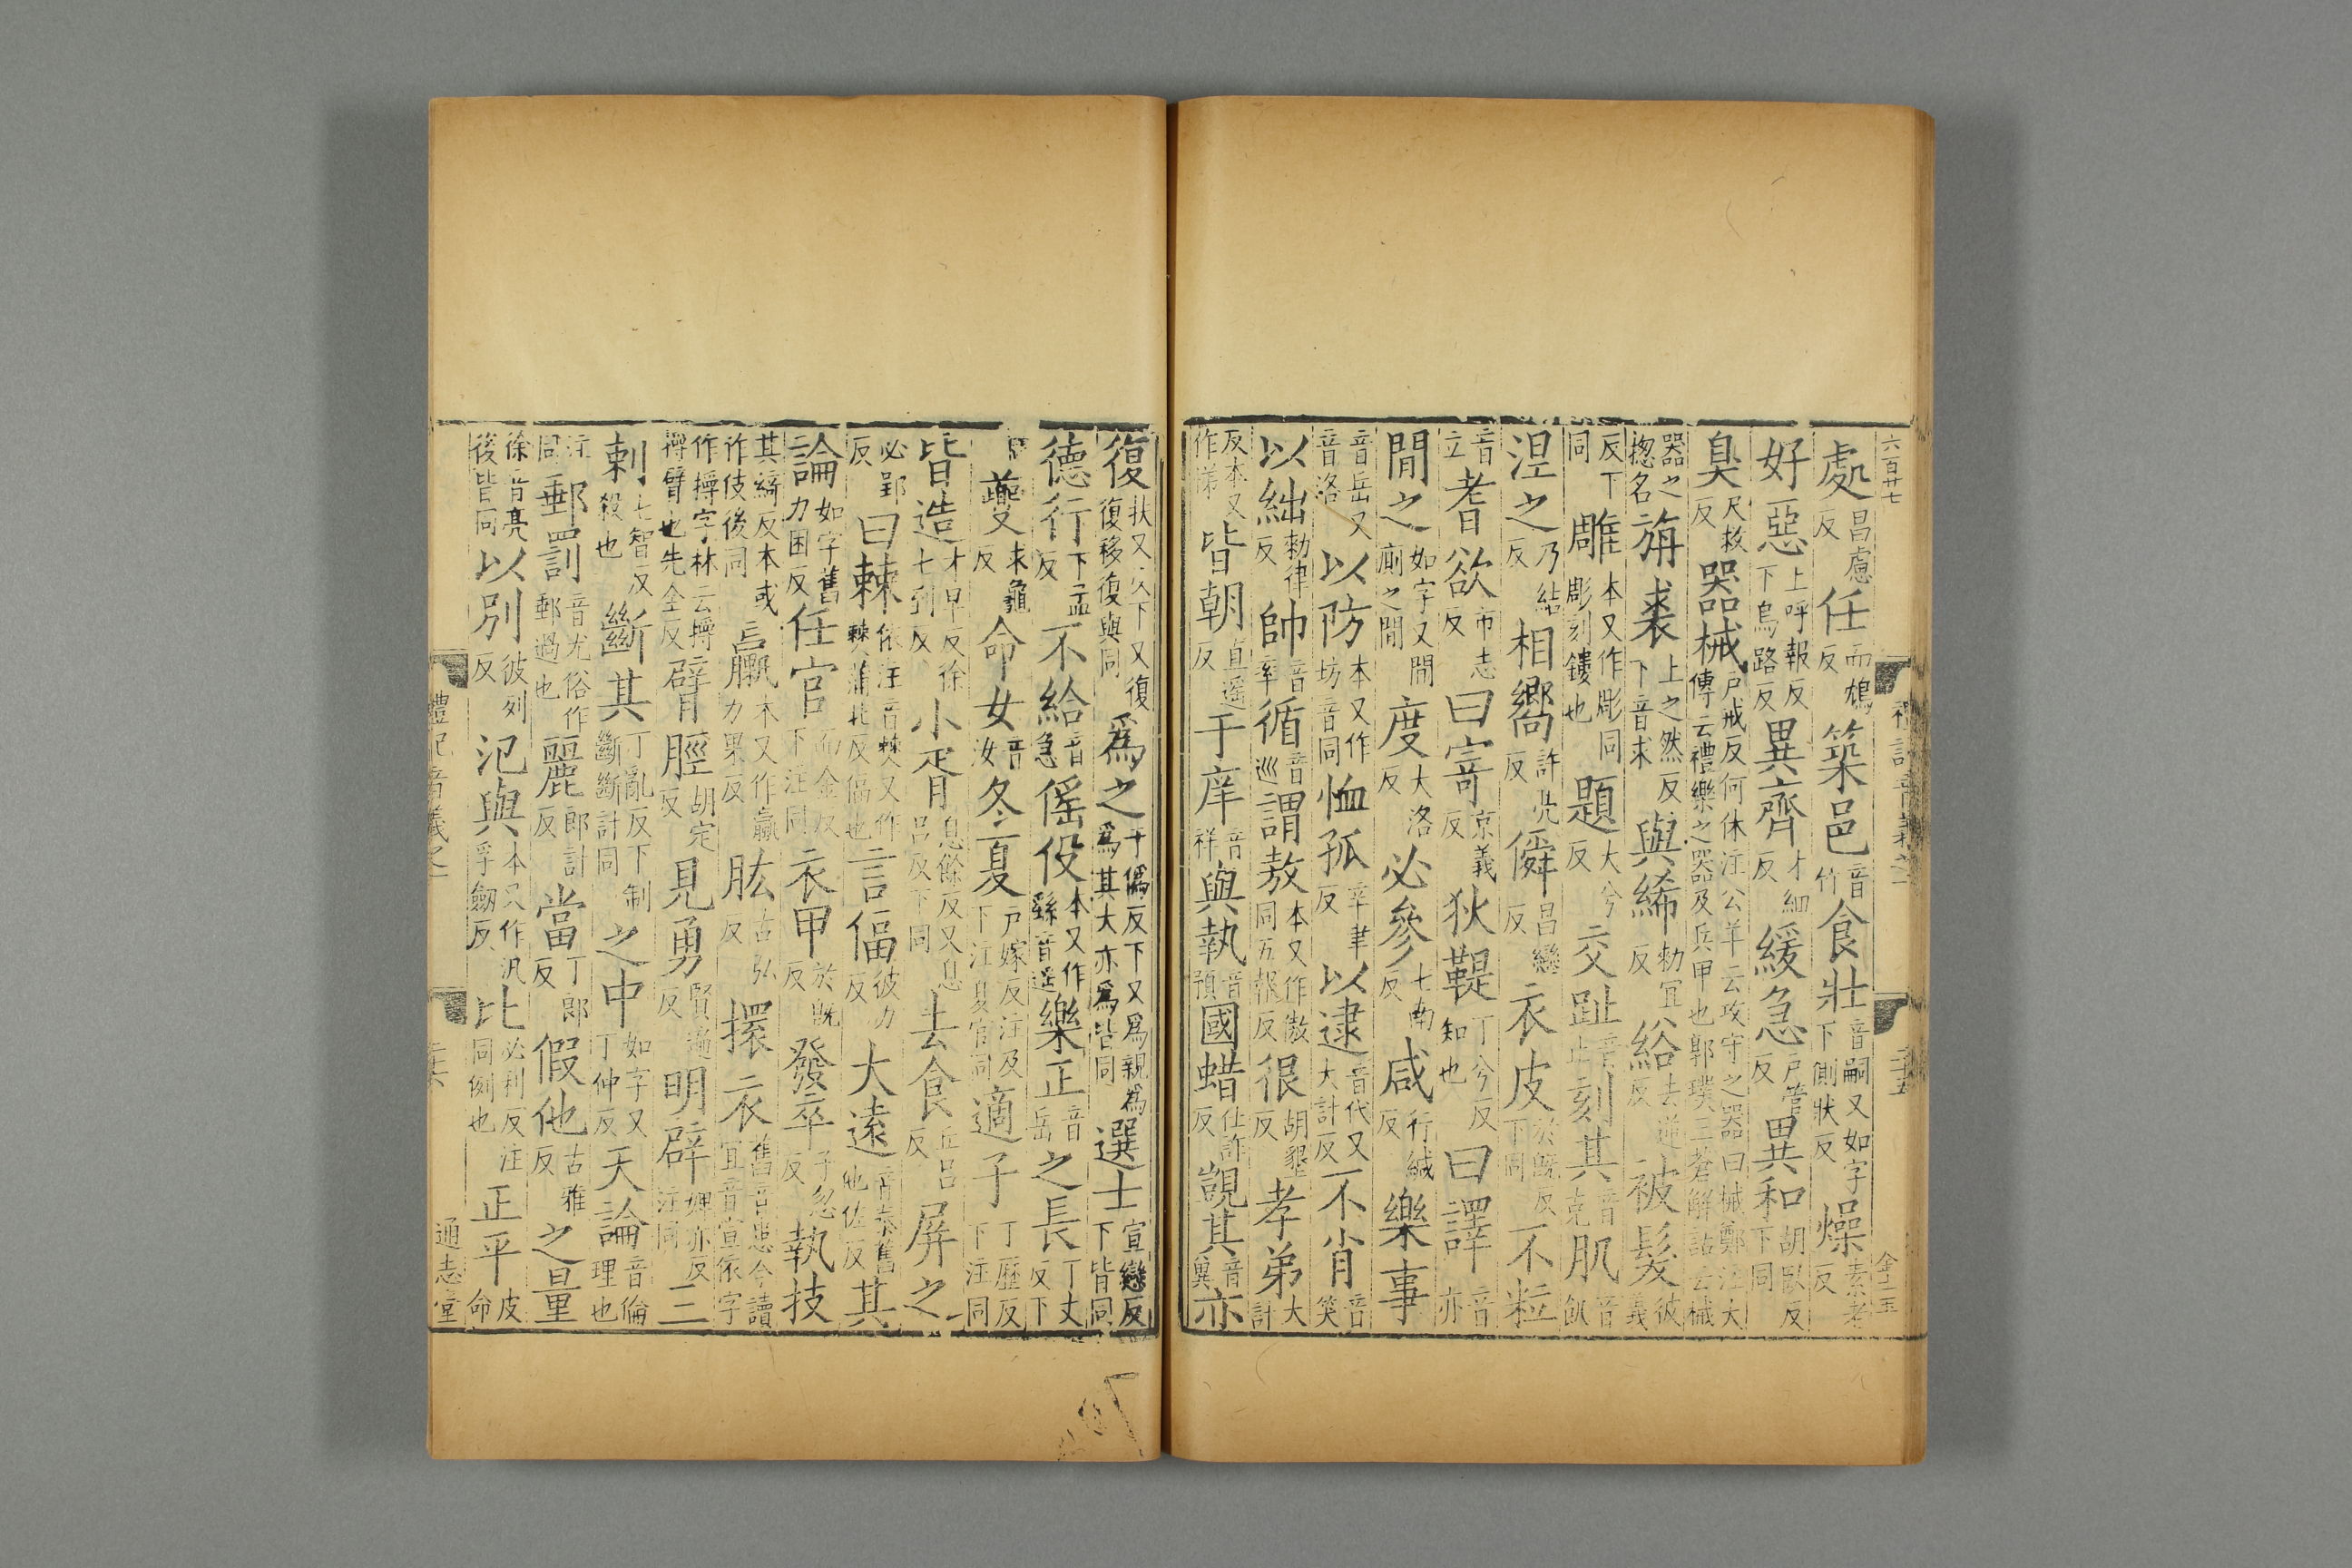 六百廿七
禮記音義之一
二十五
處昌慮反任而鴆反築邑音竹食壯音嗣又如字下側狀反燥素老反
好惡上呼報反下烏路反異齊才細反緩急戶管反異和胡臥反下同
臭尺救反器械戶戒反何休注公羊云攻守之器曰械鄭注大傳云禮樂之器及兵甲也郭璞三蒼解詁云械
器之揔名旃裘上之然反下音求與絺勑宜反綌去逆反被髮彼義
反下同雕本又作彫同彫刻鏤也題大兮反交趾音止刻其音克肌音飢
涅之乃結反相嚮許亮反僢昌戀反衣皮於旣反下同不粒
音立耆欲市志反曰寄京義反狄鞮丁兮反知也曰譯音亦
閒之如字又閒廁之閒度大洛反必參七南反咸行緘反樂事
音岳又音洛以防本又作坊音同恤孤辛聿反以逮音代又大計反不肖音笑
以絀勑律反帥音率循音巡謂敖本又作傲同五報反很胡墾反孝弟大計
反本又作悌皆朝直遥反于庠音祥與執音預國蜡仕許反覬其音冀亦
復扶又反下又復復移復與同爲之于僞反下又爲親爲爲其大亦爲皆同選士宣戀反下皆同
德行下孟反不給音急傜役本又作繇音遥樂正音岳之長丁丈反下
同夔求龜反命女音汝冬夏戶嫁反注及下注夏官同適子丁歷反下注同
皆造才早反徐七到反小胥息餘反又息呂反下同去食丘呂反屏之
必郢反曰棘依注音僰又作僰蒲北反偪也言偪彼力反大遠音泰舊他佐反其
論如字舊力困反任官而金反下注同衣甲於旣反發卒子忽反執技
其綺反本或作伎後同臝本又作蠃力果反肱古弘反擐衣舊音患今讀宜音宣依字
作㨮字林云㨮㨮臂也先全反脛胡定反見勇賢遍反明辟婢亦反注同三
刺七智反殺也斷其丁亂反下制斷斷計同之中如字又丁仲反天論音倫理也
注同郵罰音尤俗作郵過也麗郎計反當丁郎反假他古雅反之量
徐音亮後皆同以別彼列反氾與本又作汎孚劒反比必利反注同例也正平皮命
禮記音義之一
二十六
通志堂